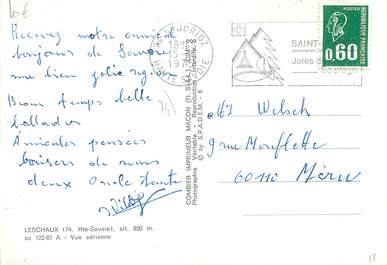 Recevez notre amical
bonjour de Savoie
une bien jolie region
Beau temps belle
ballades
Amicales pensées
baisers de nous
deux Oncle tante
LESCHAUX (74. Hte-Savoie), alt. 930 m.
cc 122-61 A - Vue aérienne
COMBIER IMPRIMEUR MACON (71-S.&L.) "CIM"
Photographie Véritable - Reproduction Interdite
© by S.P.A.D.E.M.
JORIOZ
SAVOIE
SAINT-
Joies d
POSTES
0,60
REPUBLIQUE FRANÇAISE
Welsch
9 rue Mouflette
60110 Méru